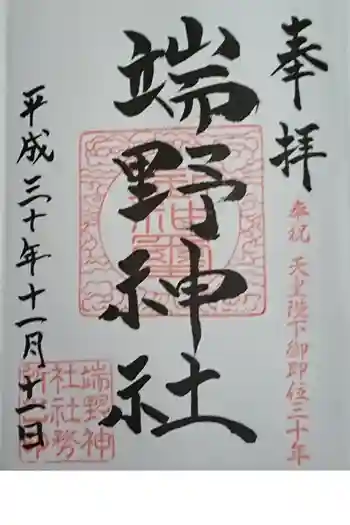 奉拝
奉祝 天皇陛下御即位三十年
端野神社
平成三十年十一月十一日
端野神
社社務
所